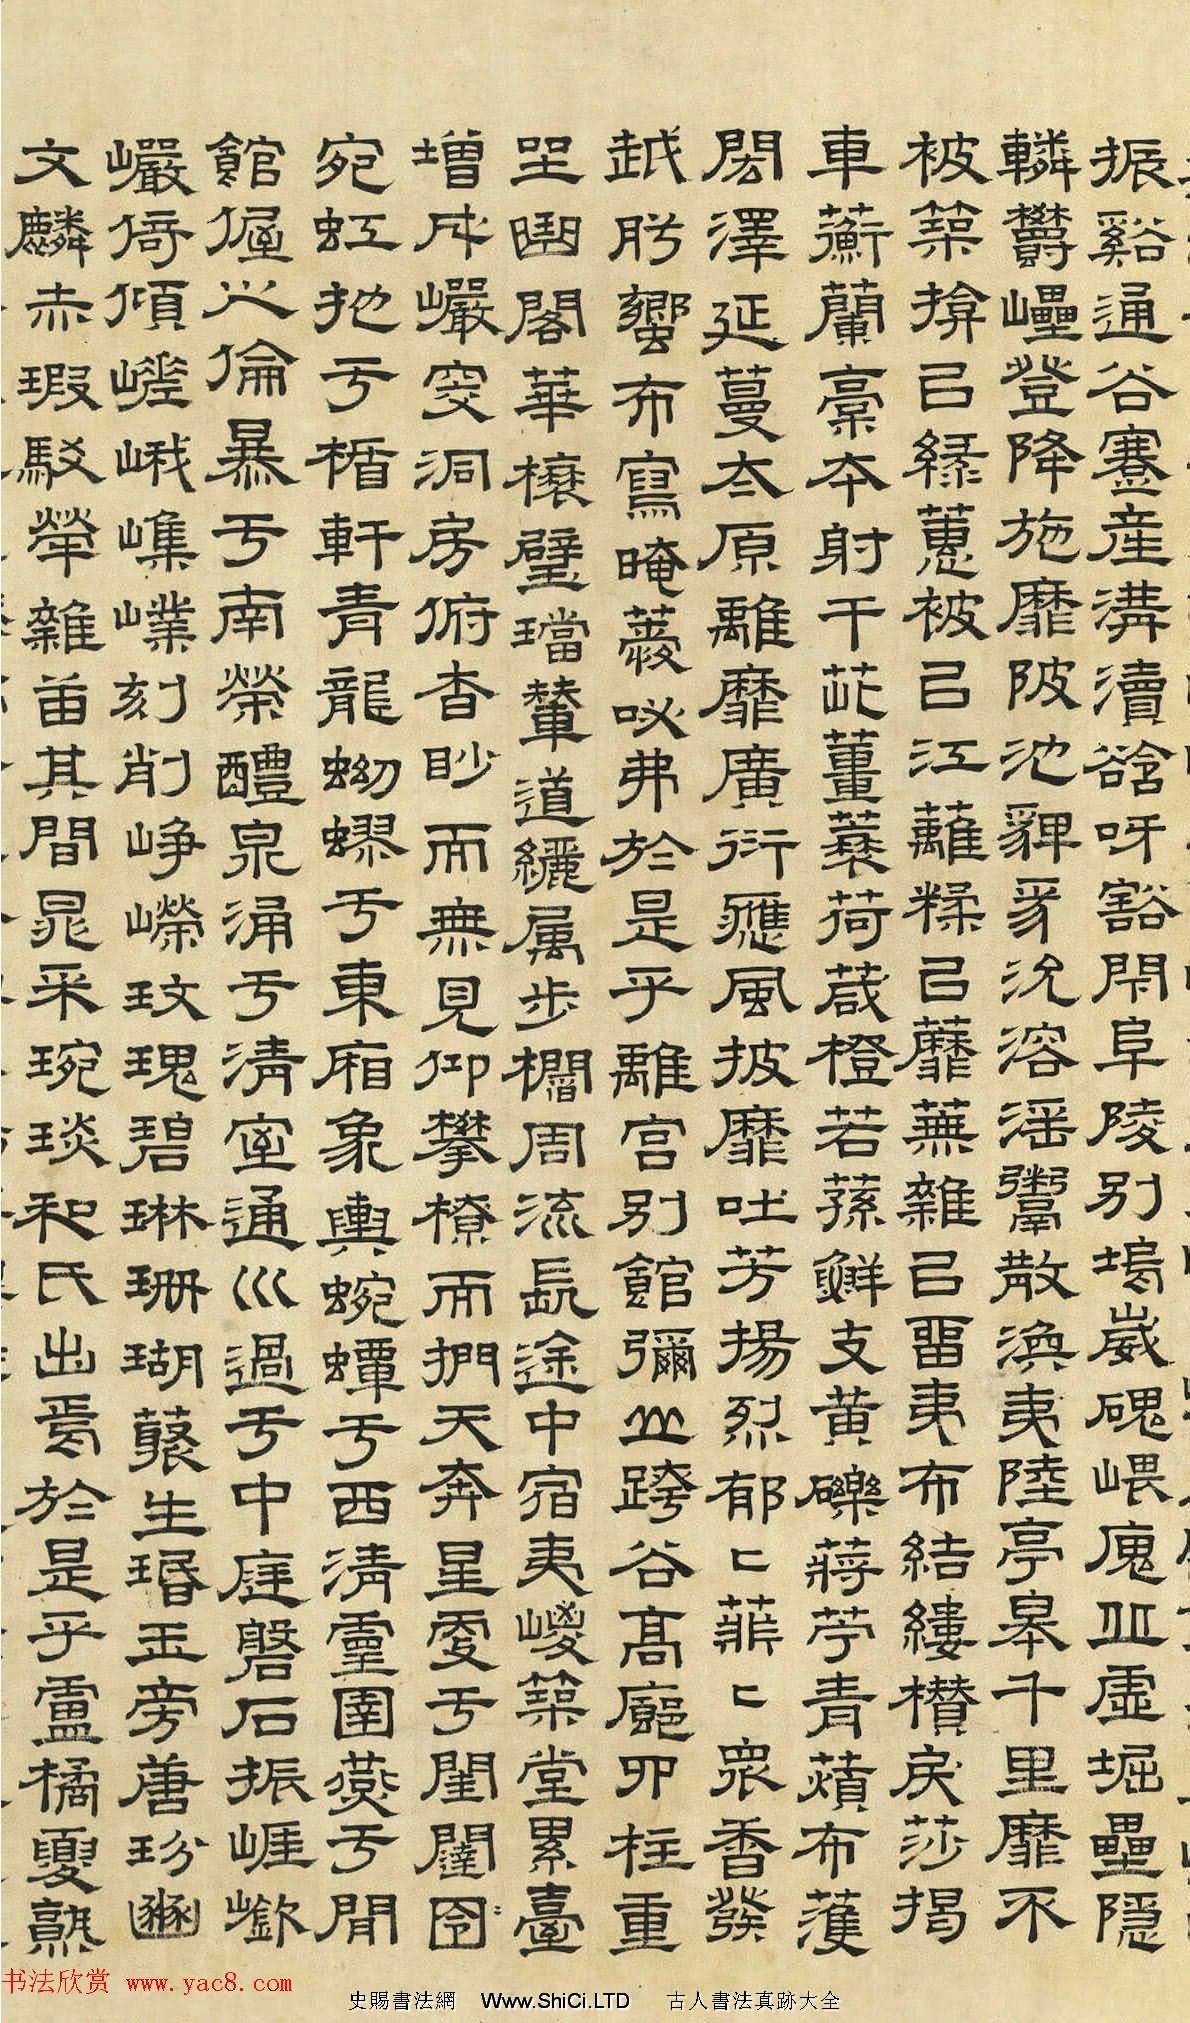 振谿通谷蹇產溝瀆谽呀豁閕阜陵別塢崴磈嵔廆丘虛堀礨隱
轔鬱㠥登降施靡陂池貏豸沇溶淫鬻散渙夷陸亭皋千里靡不
被築揜㠯綠蕙被㠯江蘺糅㠯蘪蕪雜㠯畱夷布結縷攢戾莎揭
車蘅蘭槀本射干茈薑蘘荷葴橙若蓀鮮支黃礫蔣苧青薠布濩
閎澤延蔓太原離靡廣衍應風披靡吐芳揚烈郁〻菲〻眾香發
越肸蠁布寫晻薆咇茀於是乎離宮別館彌山跨谷高廊四柱重
坐曲閣華榱璧璫輦道纚屬步櫩周流長途中宿夷嵕築堂累臺
增成巖窔洞房俯杳眇而無見仰攀橑而捫天奔星更于閨闥
宛虹扡于楯軒青龍蚴蟉于東廂象輿婉蟬于西清靈圉燕于閒
館偓佺之倫暴于南榮醴泉涌于清室通川過于中庭磐石振崖嶔
巖倚傾嵯峨嶕嶫刻削崢嶸玫瑰碧琳珊瑚叢生瑉玉旁唐玢豳
文鱗赤瑕駁犖雜臿其間晁采琬琰和氏出焉於是乎盧橘夏熟
书法欣赏 www.yac8.com
史賜書法網 Www.ShiCi.LTD 古人書法真跡大全